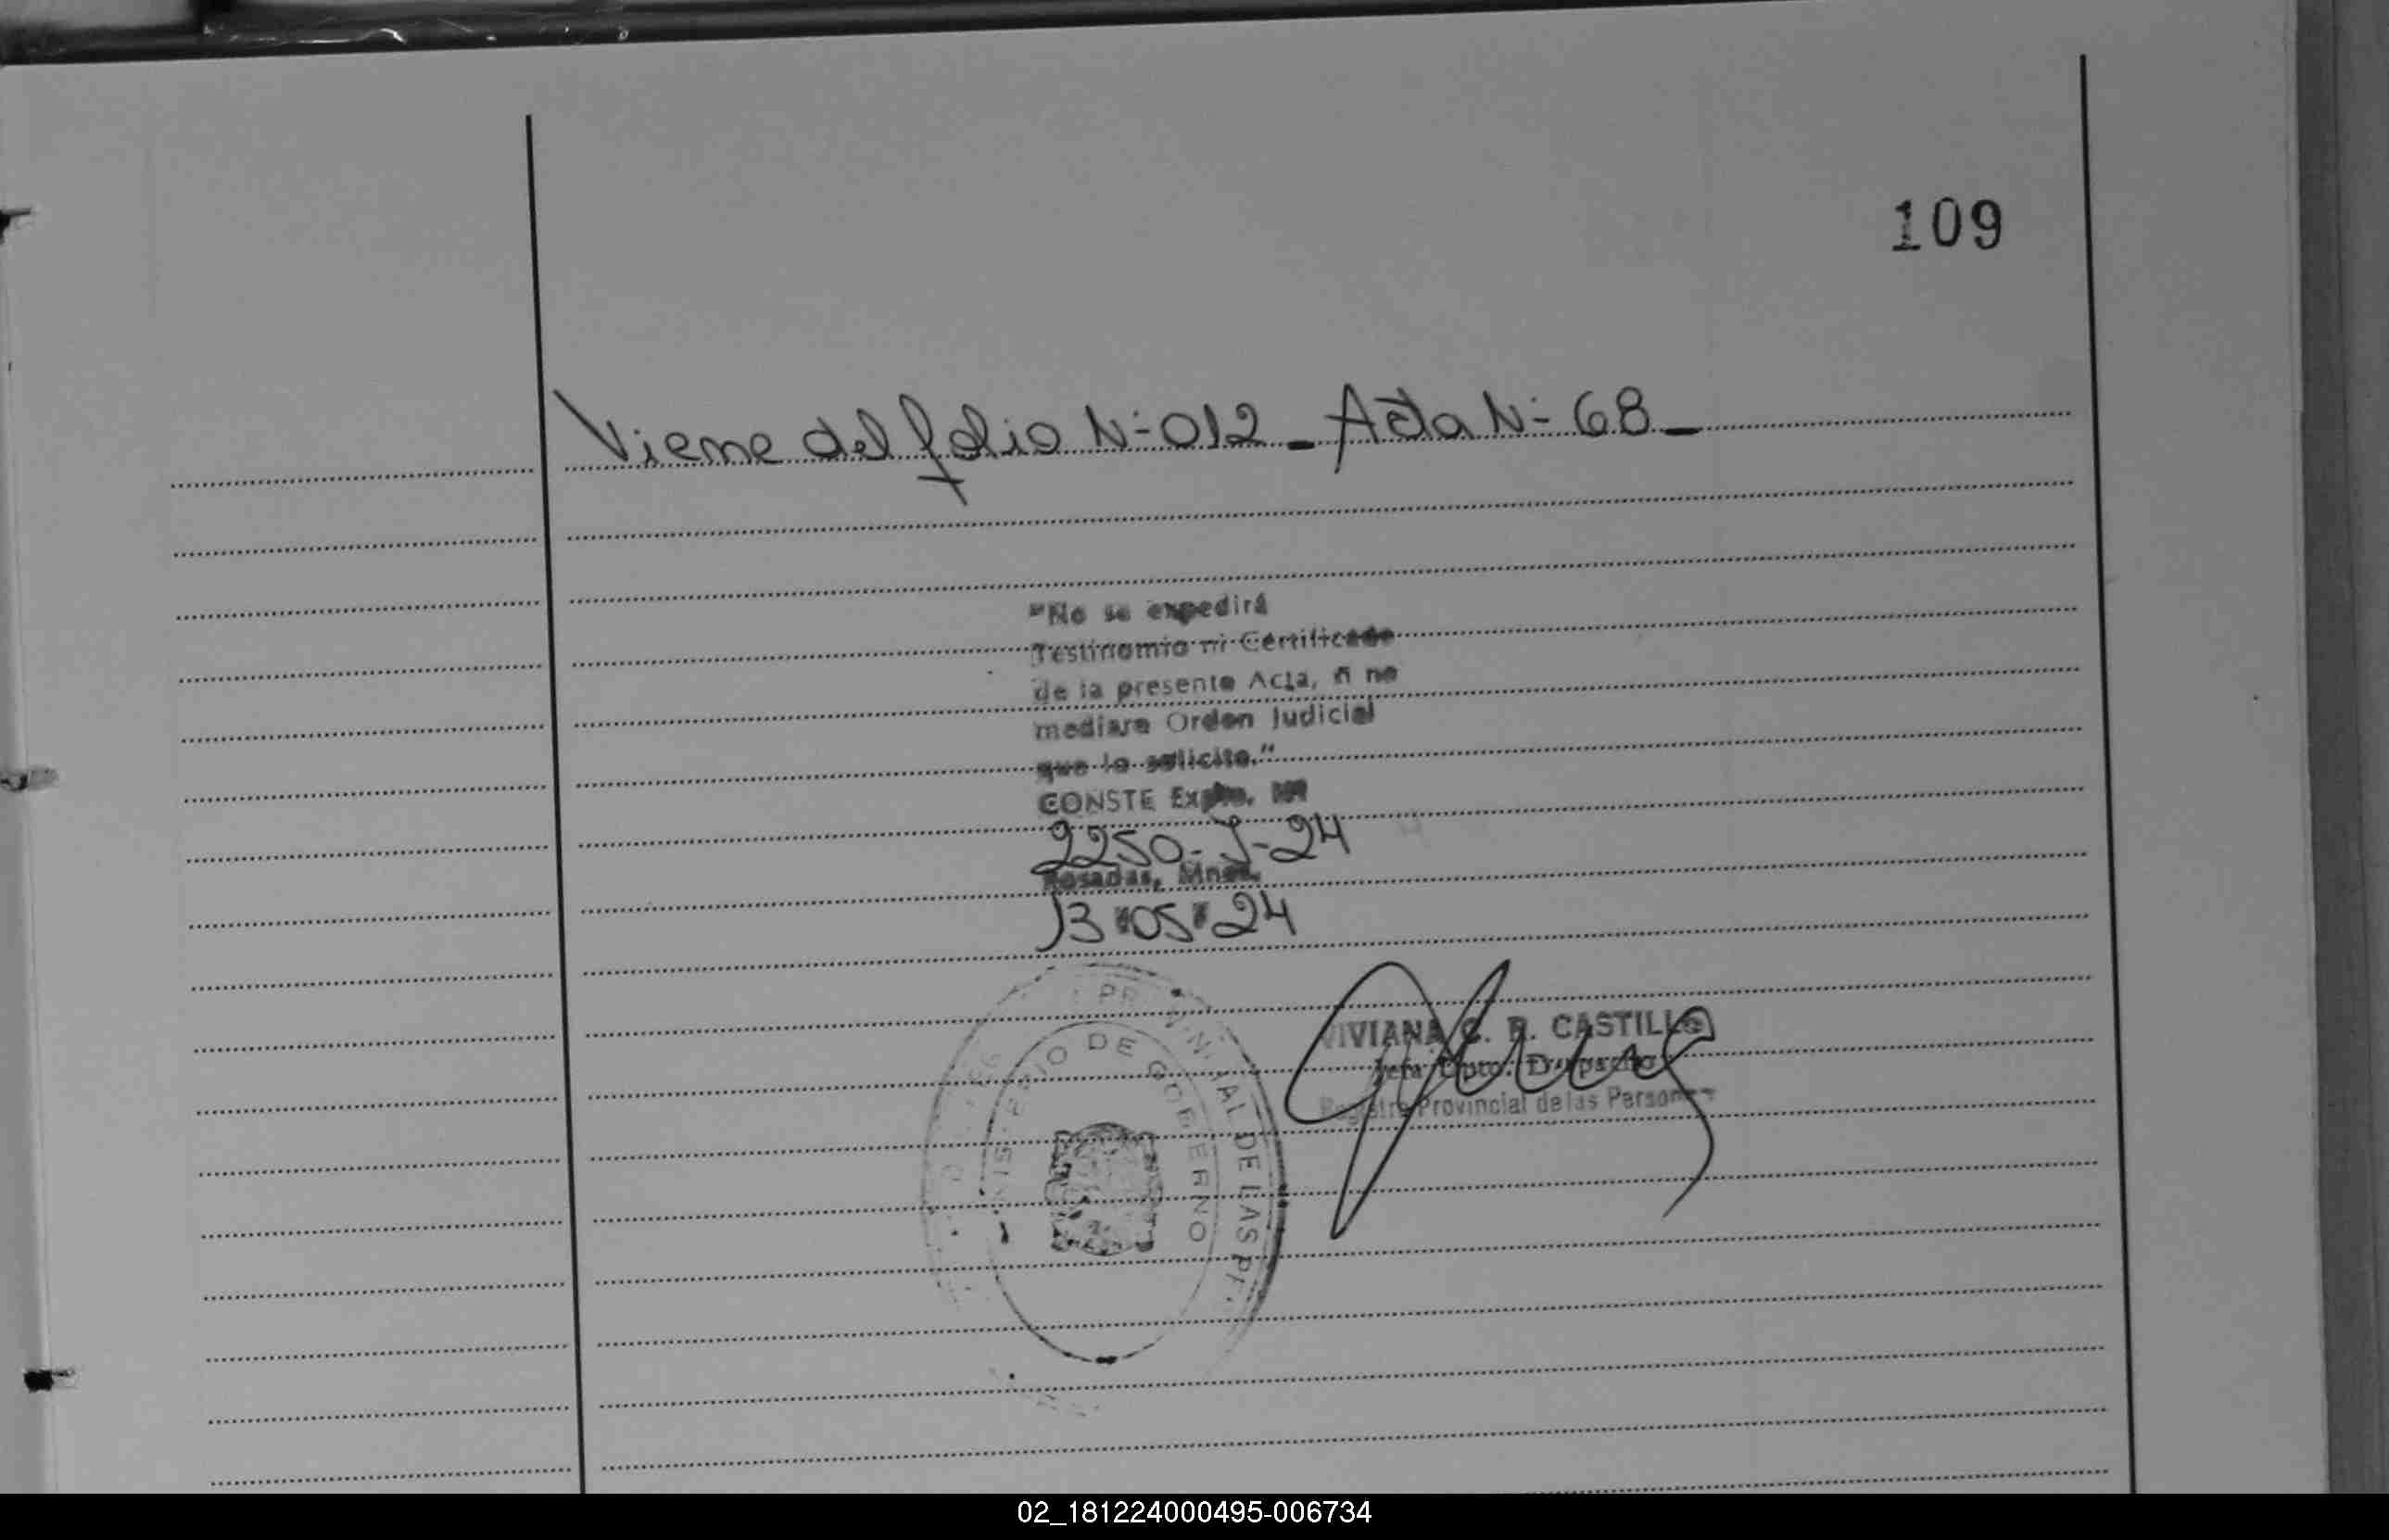 109
Viene del folio Nº 012 - Acta Nº 68 -
"No se expedirá
Testimonio ni Certificado
de la presente Acta, si no
mediare Orden Judicial
que lo solicite."
CONSTE Expte. Nº
2250-J-24
Posadas, Mnes.
13 05 24
VIVIANA C. R. CASTILLO
Jefa Dpto. Despacho
Registro Provincial de las Personas
DE LAS
DE GOBIERNO
02_181224000495-006734